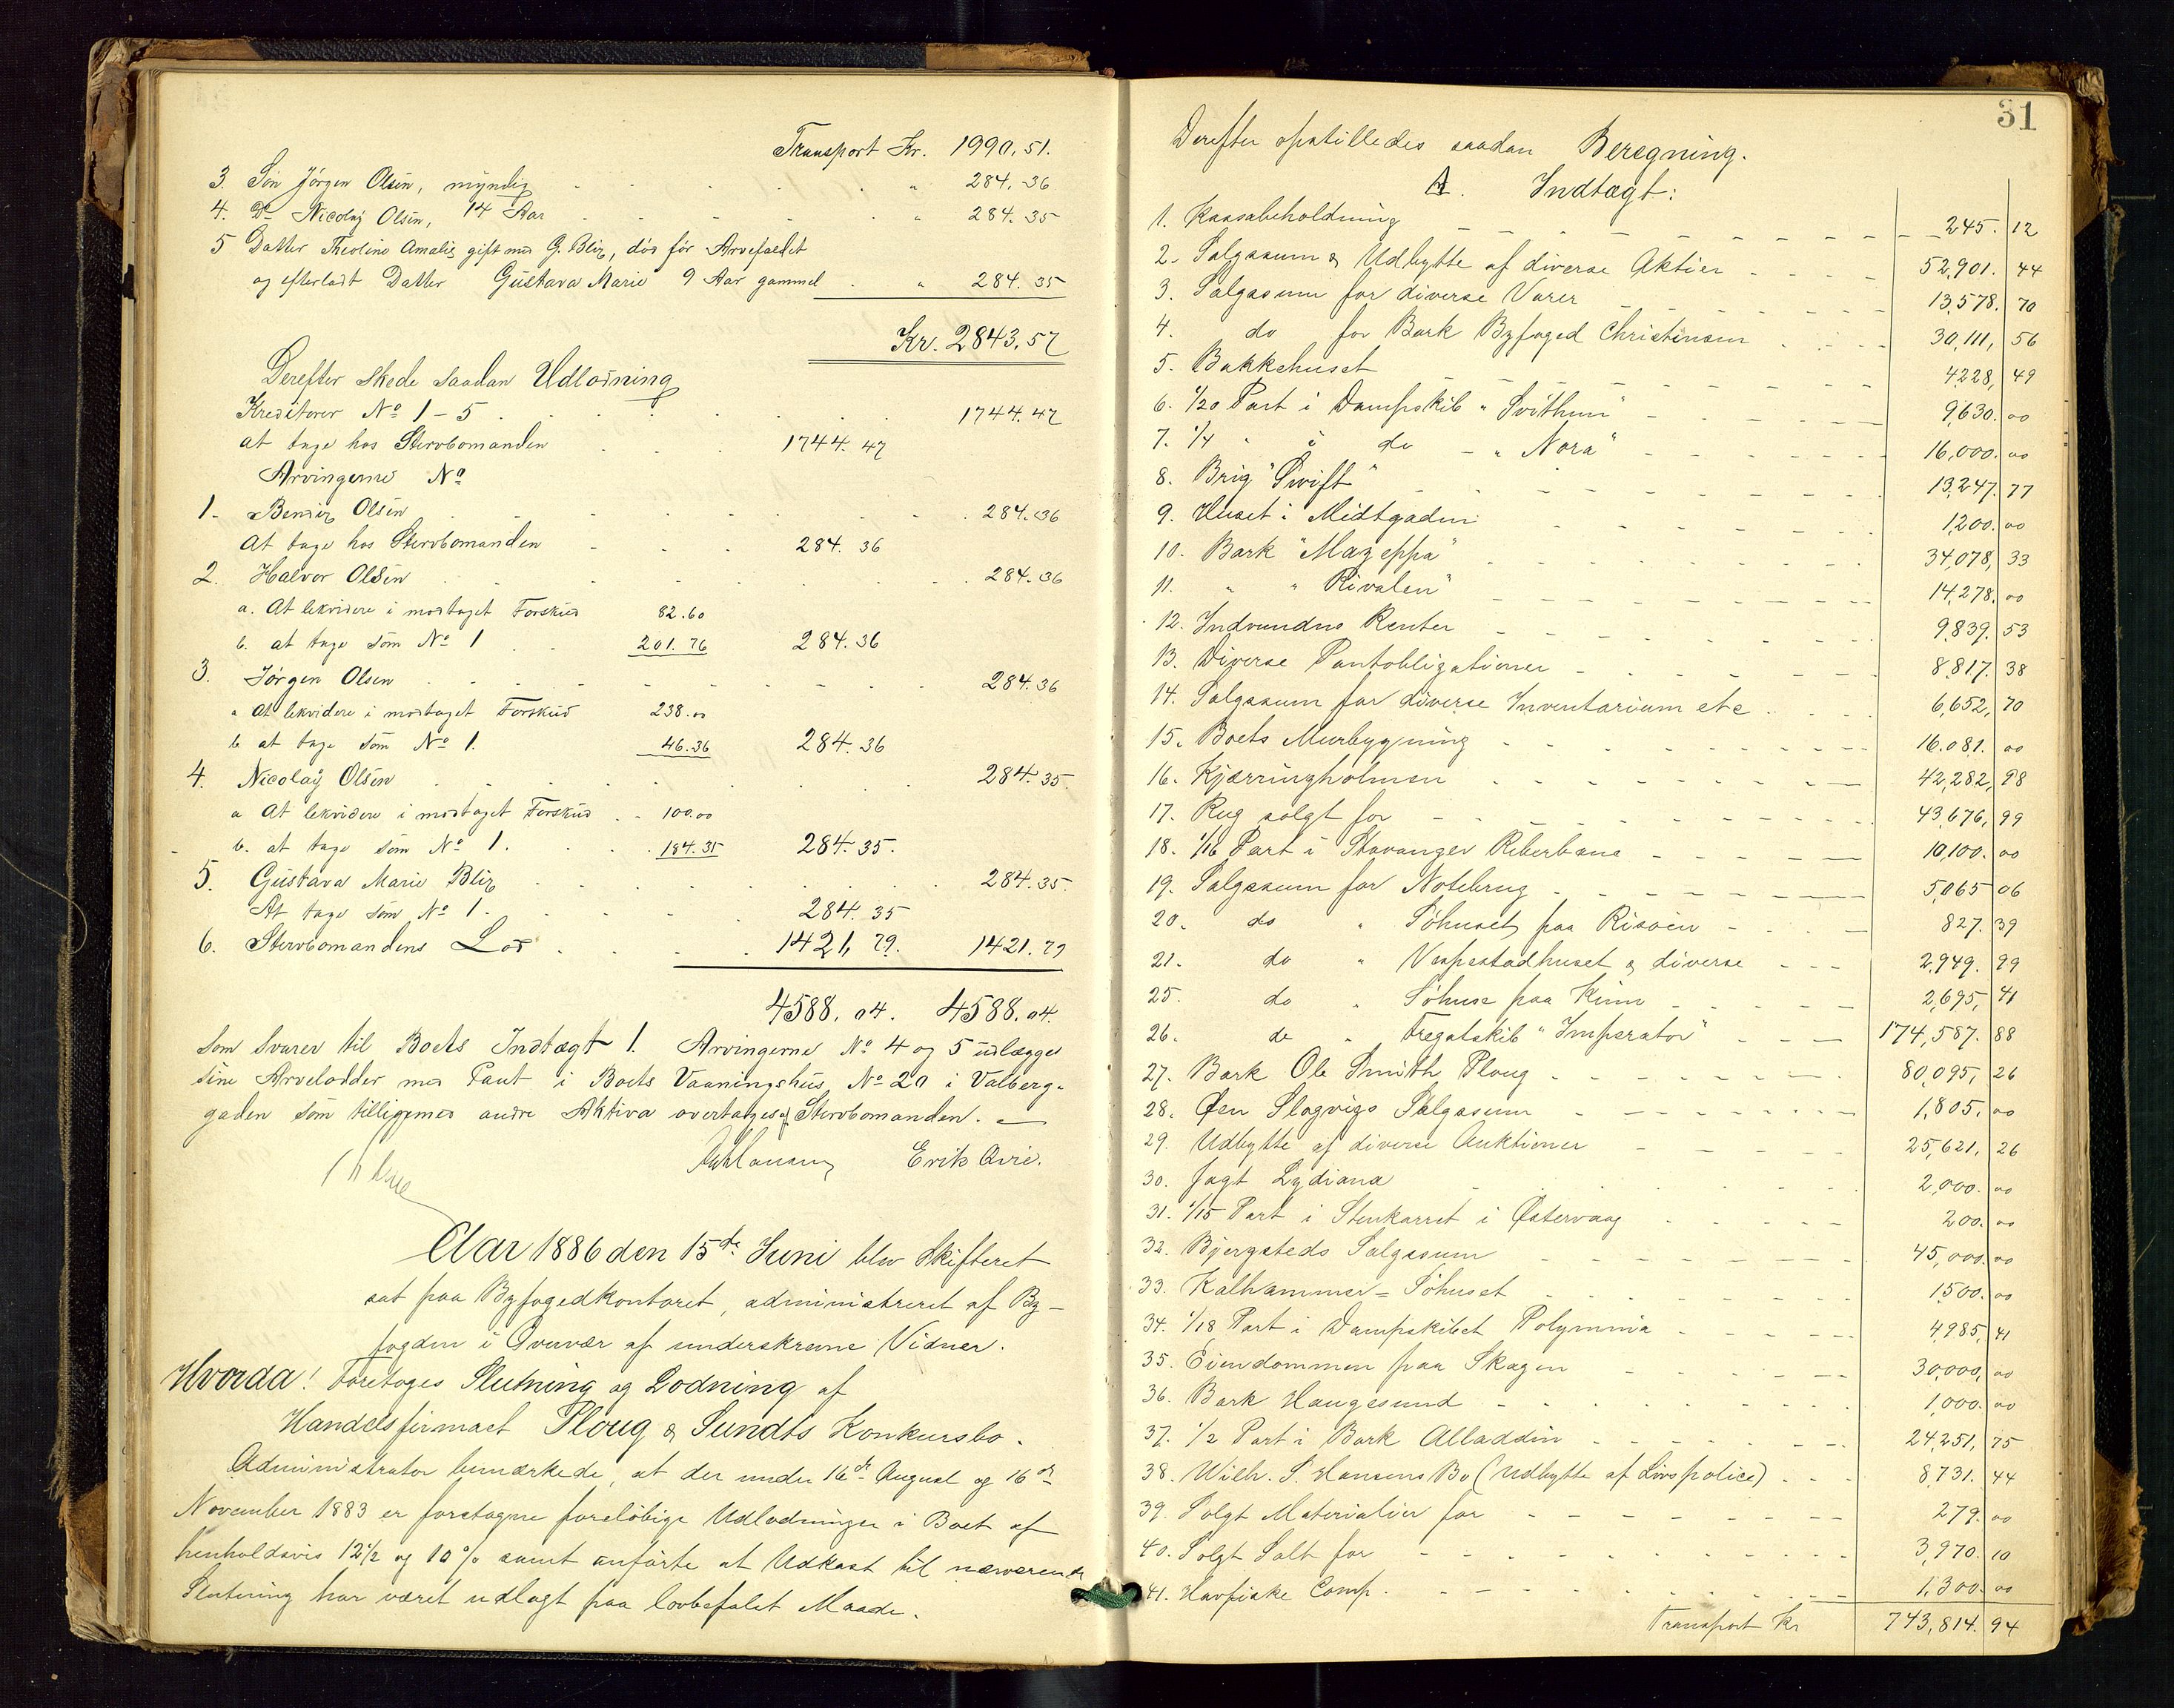 Transport Kr. 1990,51.
3. Søn Jörgen Olsen, myndig " 284.36
4. Do Nicolaÿ Olsen, 14 Aar " 284.35
5 Datter Theoline Amalie gift med G. Blix, död för Arvefaldet
og efterladt Datter Gustava Marie 9 Aar gammel " 284.35
Kr. 2843,57
Derefter skede saadan Udlodning
Kreditorer No 1-5 1744.47
at tage hos Stervbomanden 1744.47
Arvingerne No
1. Olsen 284.36
At tage hos Stervbomanden 284.36
2. Halvor Olsen 284.36
a. At likvidere i modtaget Forskud 82.60
b. at tage som No 1 201.76 284.36
3. Jörgen Olsen 284.36
a At likvidere i modtaget Forskud 238.00
b at tage som No 1. 46.36 284.36
4. Nicolaÿ Olsen 284.35.
a At likvidere i modtaget Forskud 100.00
b. at tage som No 1. 184.35 284.35.
5. Gustava Marie Blix 284.35.
At tage som No 1. 284.35
6. Stervbomandens Lod 1421,79. 1421.79
4588.04. 4588.04.
som svarer til Boets Indtægt 1. Arvingerne No 4 og 5 udlægges
sine Arvelodder med Pant i Boets Vaaningshus No 20 i Valberg-
gaden som tilligemed andre Aktiva overtages af Stervbomanden.
Erik Qvie.
Aar 1886 den 15de Juni blev Skifteret
sat paa Byfogedkontoret, administreret af By-
fogden i Overvær af underskrevne Vidner.
Hvorda! Foretoges Slutning og Lodning af
Handelsfirmaet Ploug & Sundts Konkursbo.
Administrator bemærkede, at der under 16de August og 16de
November 1883 er foretagne foreløbige Udlodninger i Boet af
henholdsvis 12½ og 10% samt anførte at Udkast til nærværende
Slutning har været udlagt paa lovbefalet Maade.
31
Derefter opstilledes saadan Beregning.
A. Indtægt:
1. Kassabeholdning 245. 12
2. Salgssum & Udbytte af diverse Aktier 52,901. 44
3. Salgssum for diverse Varer 13,578. 70
4. do for Bark Byfoged Christensen 30,111, 56
5. Bakkehuset 4228, 49
6. 1/20 Part i Dampskib "Svithun" 9,630. 00
7. 1/4 " i do "Nora" 16,000. 00
8. Brig "Swift" 13,247. 77
9. Huset i Midtgaden 1,200. 00
10. Bark "Mazeppa" 34,078, 33
11. " "Rivalen" 14,278. 00
12. Indvundne Renter 9,839. 53
13. Diverse Pantobligationer 8,817. 38
14. Salgssum for diverse Inventarium etc 6,652, 70
15. Boets Murbygning 16.081. 00
16. Kjærringholmen 42,282, 98
17. Rug solgt for 43,676, 99
18. 1/16 Part i Stavanger Reberbane 10,100. 00
19. Salgssum for Notebrug 5,065 06
20. do " Söhuset paa Risöen 827. 39
21. do " Vespestadhuset & diverse 2,949. 99
25. do " Söhuse paa Kinn 2,695, 41
26. do " Fregatskib "Imperator" 174,587. 88
27. Bark Ole Smith Ploug 80,095, 26
28. Øen Slogvigs Salgssum 1,805. 00
29. Udbytte af diverse Auktioner 25,621, 26
30. Jagt Lydiana 2,000. 00
31. 1/15 Part i Stenkarret i Østervaag 200. 00
32. Bjergsteds Salgssum 45,000. 00
33. Kalhammer=Söhuset 1500. 00
34. 1/18 Part i Dampskibet Polymnia 4985, 41
35. Eiendommen paa Skagen 30,000, 00
36. Bark Haugesund 1,000. 00
37. 1/2 Part i Bark Alladdin 24,251, 75
38. Wilh. S. Hansens Bo (Udbytte af Livspolice) 8,731. 44
39. Solgt Materialier for 279. 00
40. Solgt Salt for 3,970. 10
41. Havfiske Comp. 1,300. 00
Transport Kr 743,814. 94